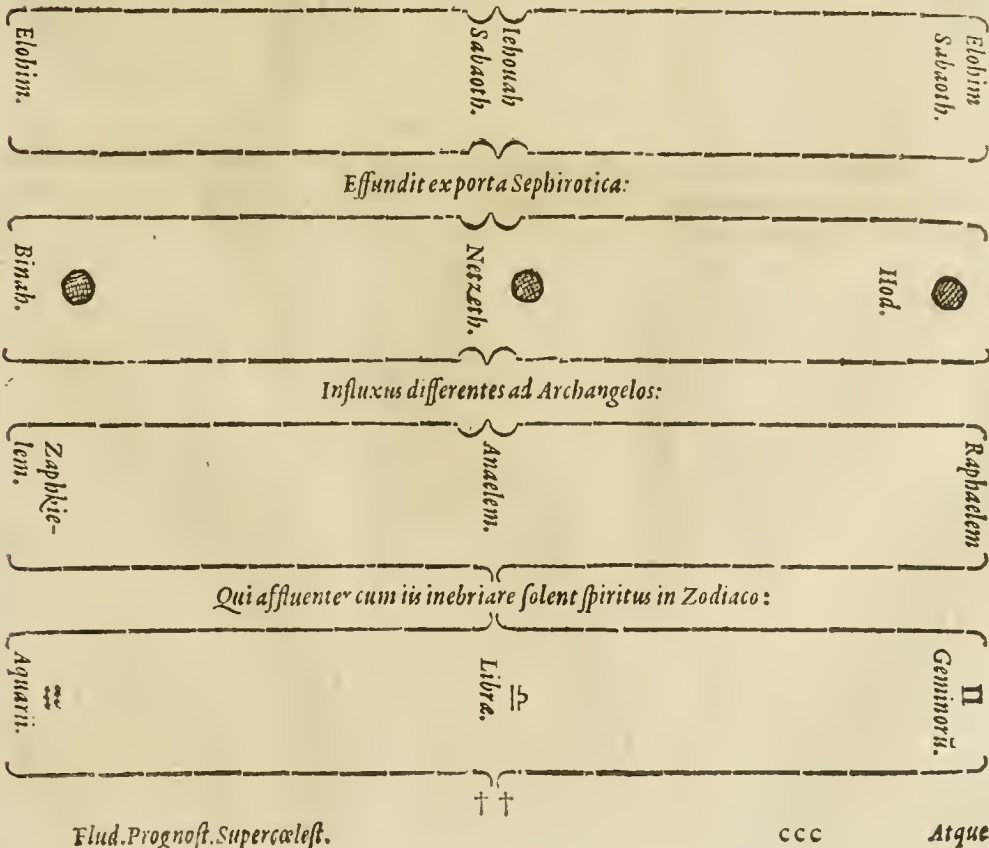 Elohim.
Iehouah
Sabaoth.
Elohim
Sabaoth.
Effundit ex porta Sephirotica:
Binah.
Netzeth.
Hod.
Influxus differentes ad Archangelos:
Zaphkie-
lem.
Anaelem.
Raphaelem
Qui affluenter cum iis inebriare ſolent ſpiritus in Zodiaco:
Aquarii. ♒
Libræ. ♎
♊
Geminorū.
††
Flud. Prognoſt. Supercœleſt. ccc Atque